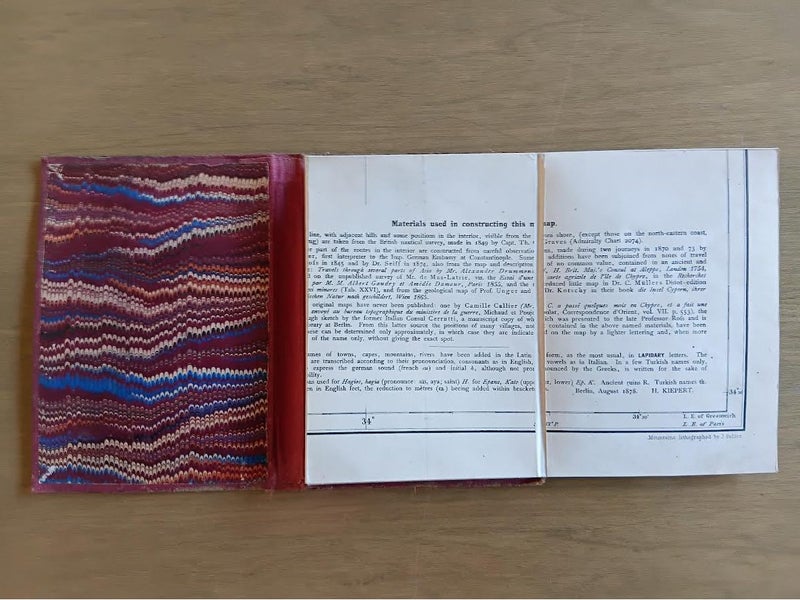 Materials used in constructing this map.
line, with adjacent hills and some positions in the interior, visible from the shore, (except those on the north-eastern coast,
are taken from the British nautical survey, made in 1849 by Capt. Th. Graves (Admiralty Chart 2074).
part of the routes in the interior are constructed from careful made during two journeys in 1870 and 73 by
first interpreter to the Imp. German Embassy at Constantinople. Some additions have been subjoined from notes of travel
in 1845 and by Dr. Seiff in 1874, also from the map and description of no common value, contained in an ancient and
Travels through several parts of Asia by Mr. Alexander H. Brit. Maj.'s Consul at Aleppo, London 1754,
on the unpublished survey of Mr. de Mas-Latrie, via. the Essai d'une carte agricole de l'île de Chypre, in the Recherches
par M. M. Albert Gaudry et Amédée Damour, Paris 1855, and the reduced little map in Dr. C. Müllers Didot-edition
minores (Tab. XXVI), and from the geological map of Prof. Unger and Dr. Kotschy in their book die Insel Cypern, ihrer
Natur nach geschildert, Wien 1865.
original maps have never been published: one by Camille Callier
envoyé au bureau topographique du ministère de la guerre, Michaud et Correspondance d'Orient, vol. VII. p. 553), the
sketch by the former Italian Consul Cerrutti, a manuscript copy of which was presented to the late Professor Ross and is
at Berlin. From this latter source the positions of many villages, not contained in the above named materials, have been
can be determined only approximately, in which case they are on the map by a lighter lettering and, when more
of the name only, without giving the exact spot.
of towns, capes, mountains, rivers have been added in the Latin form, as the most usual, in LAPIDARY letters. The
are transcribed according to their pronounciation, consonants as in English, vowels as in Italian. In a few Turkish names only,
express the german sound (french eu) and initial although not pronounced by the Greeks, is written for the sake of
used for Hagios, hagia (pronounce: aïs, aya; saint) H. for Epano, Kato (upper, lower) Ep. K. Ancient ruins R. Turkish names th.
in English feet, the reduction to mètres (m.) being added within
Berlin, August 1878. H. KIEPERT.
34°30'
34° 34°30' L. E. of Greenwich
L. E. of Paris
Mountains lithographed by